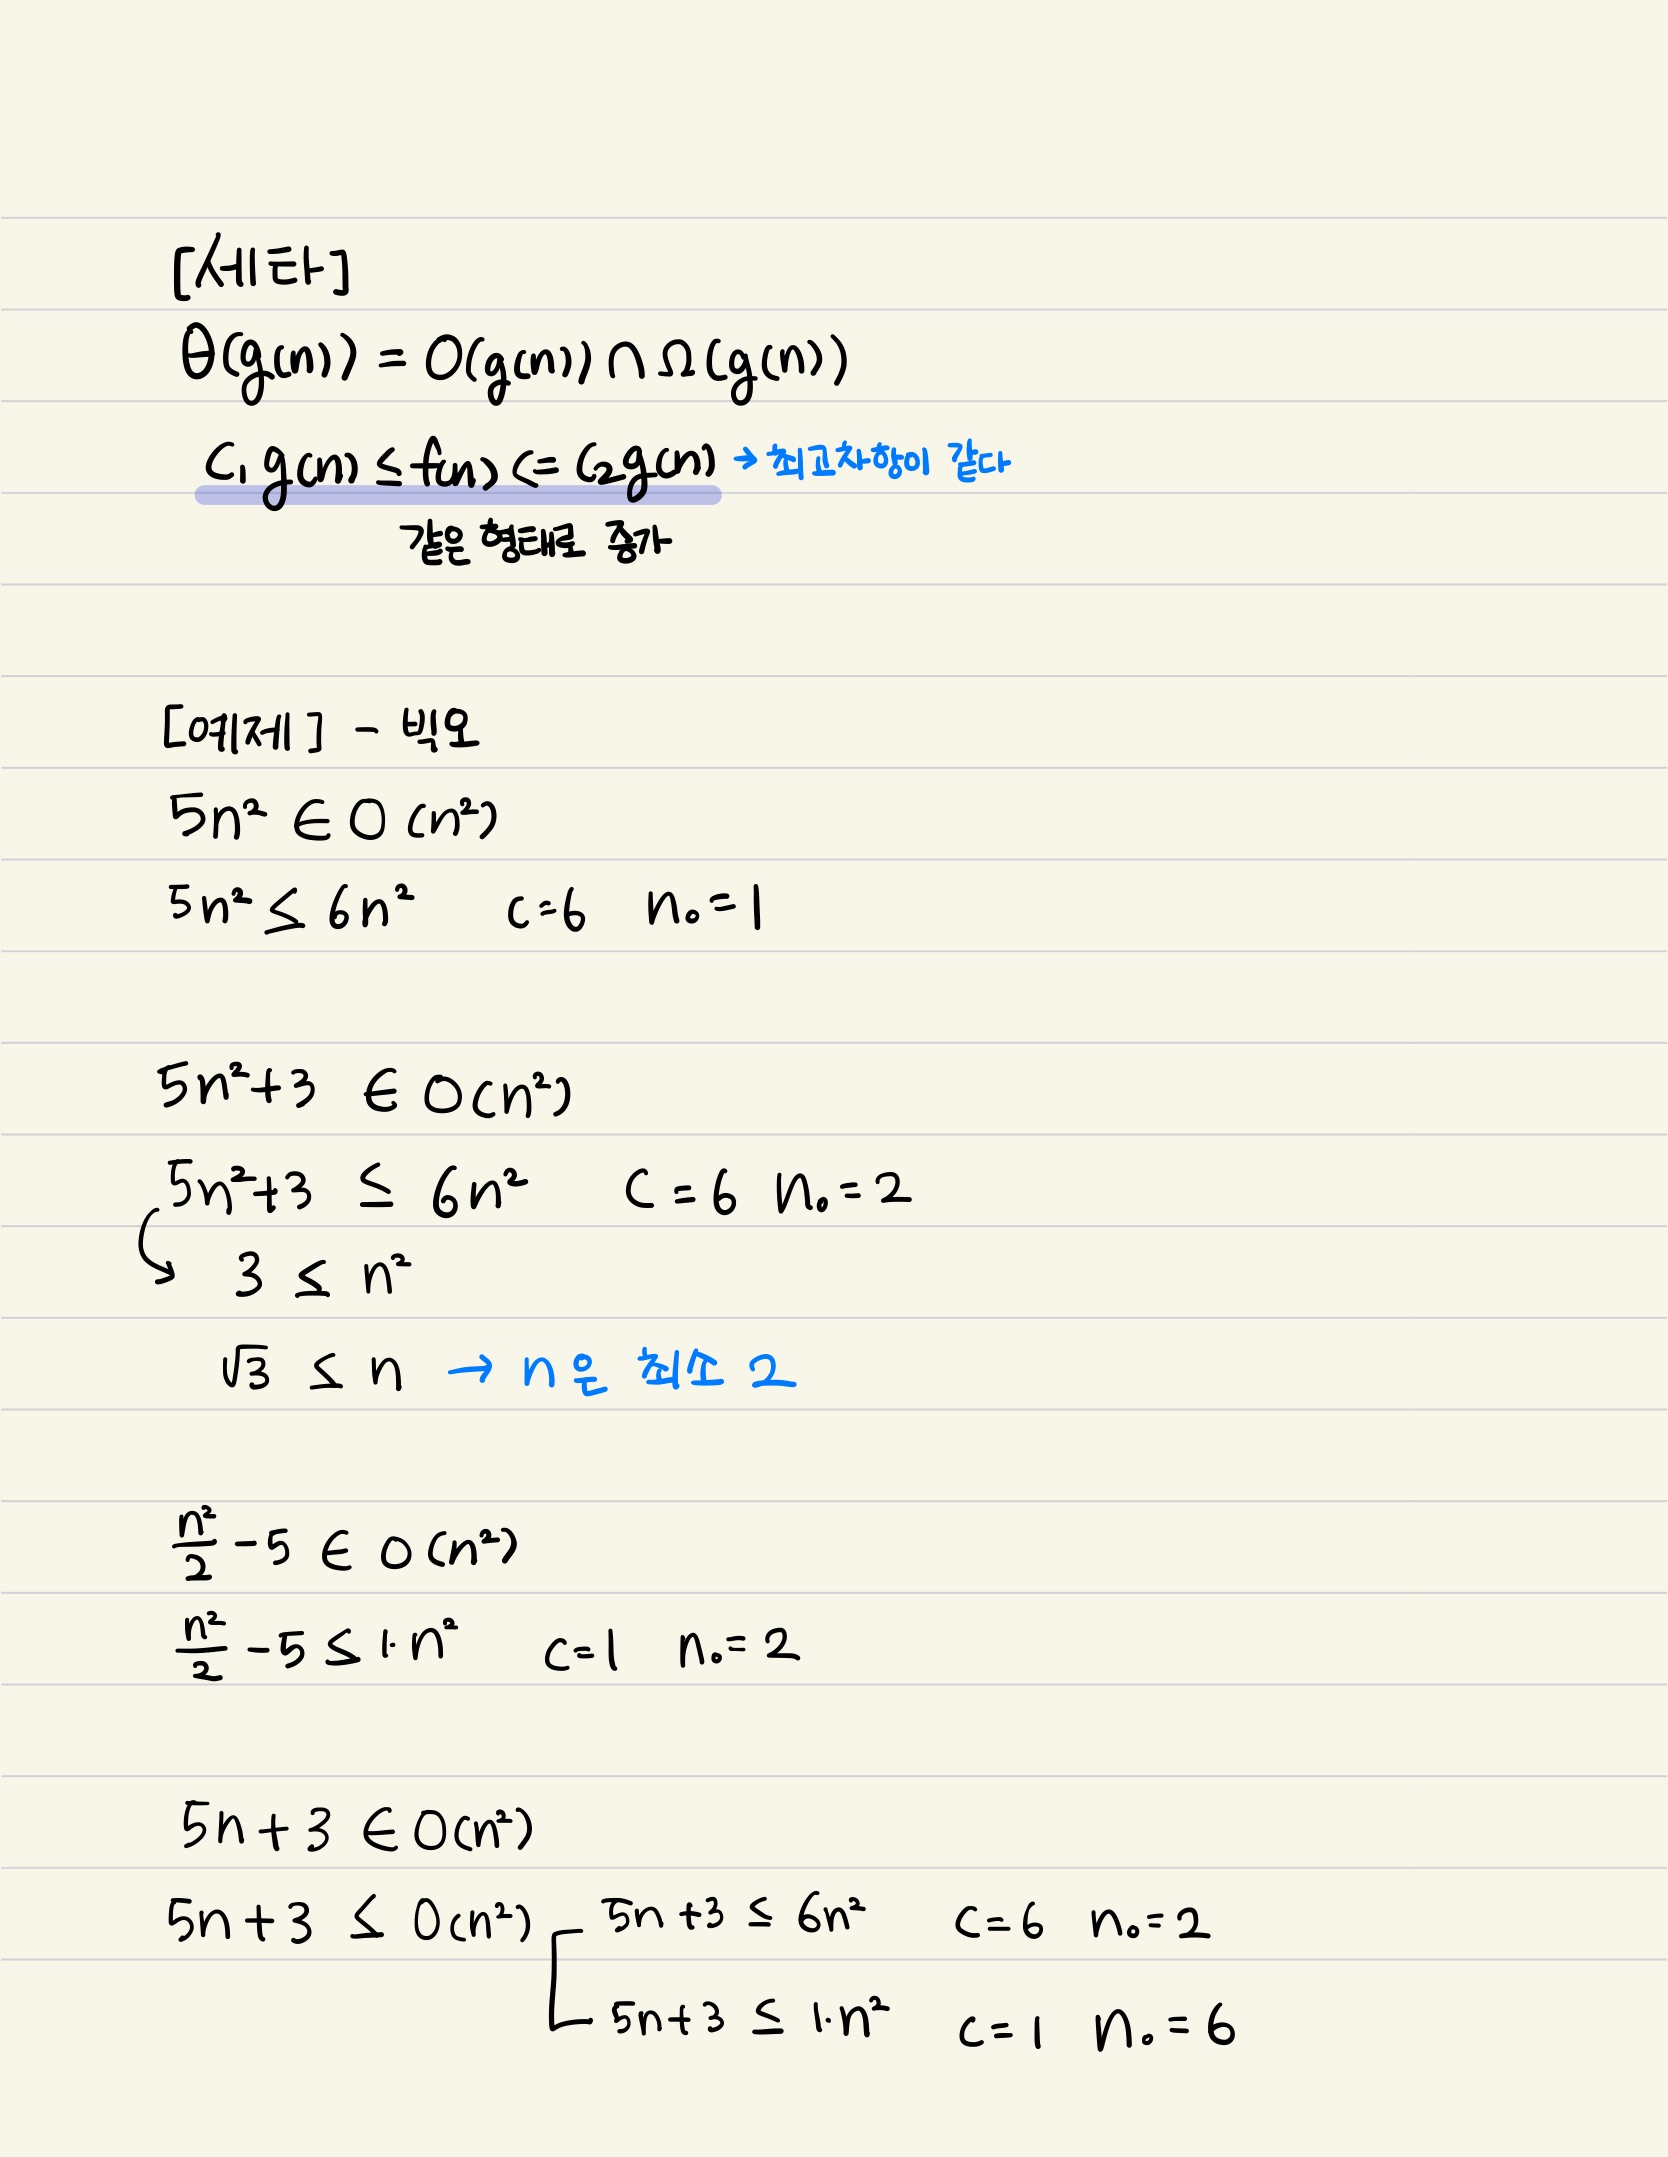 [세타]
θ(g(n)) = O(g(n)) ∩ Ω(g(n))
C₁ g(n) ≤ f(n) <= C₂g(n) → 최고차항이 같다
같은 형태로 증가
[예제] - 빅오
5n² ∈ O (n²)
5n² ≤ 6n² c=6 n₀=1
5n²+3 ∈ O(n²)
5n²+3 ≤ 6n² C=6 n₀=2
3 ≤ n²
√3 ≤ n → n은 최소 2
n²/2 -5 ∈ O(n²)
n²/2 -5 ≤ 1·n² c=1 n₀=2
5n+3 ∈ O(n²)
5n+3 ≤ O(n²) 5n+3 ≤ 6n² C=6 n₀=2
5n+3 ≤ 1·n² c=1 n₀=6